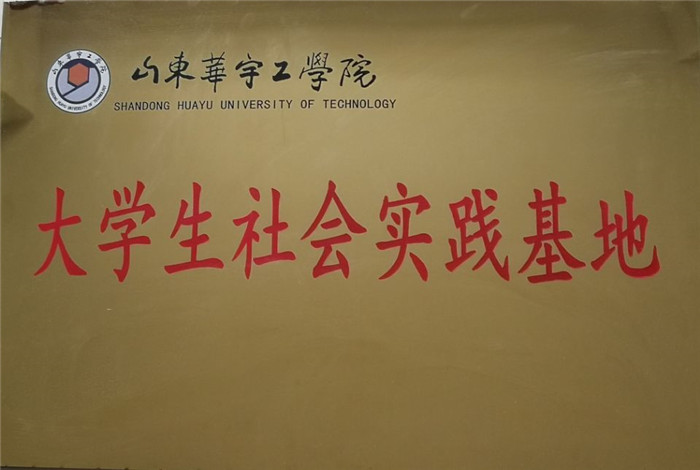 山東華宇工學院
SHANDONG HUAYU UNIVERSITY OF TECHNOLOGY
大学生社会实践基地